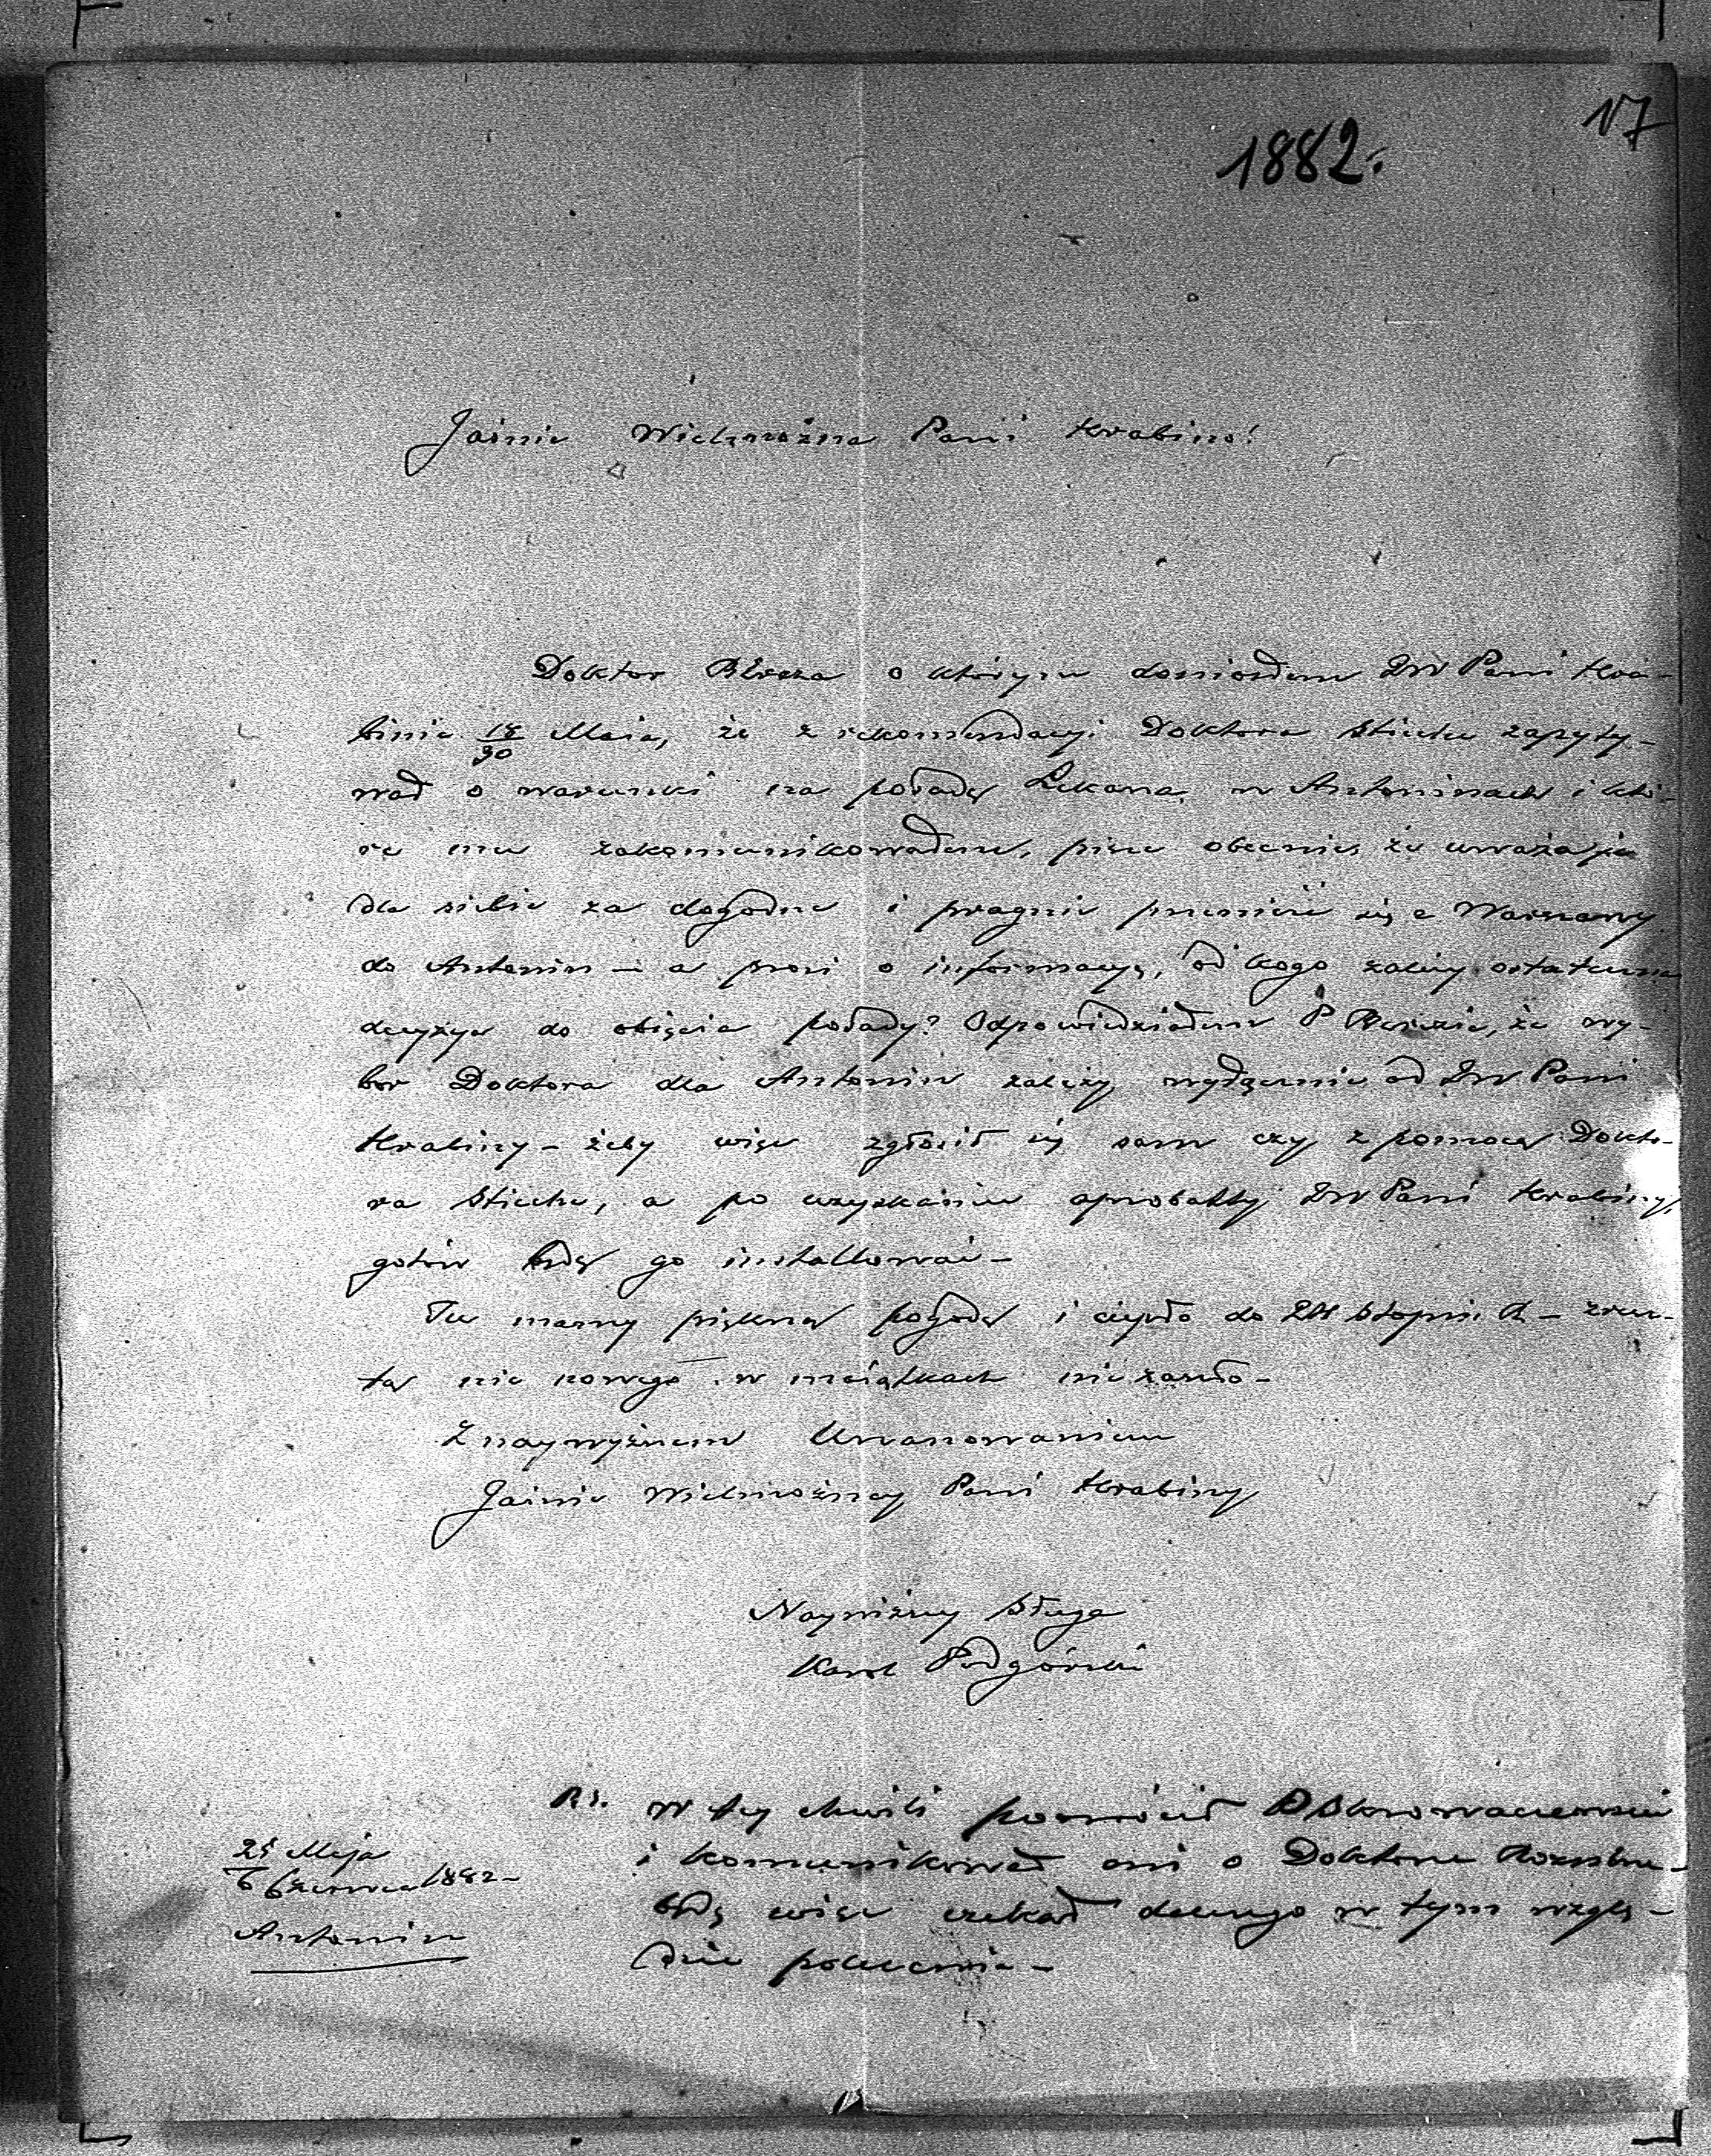 17
1882.
Jaśnie Wielmożna Pani Hrabino!
Doktor o którym doniosłem JW Pani Hra-
binie 18/30 Maia, że z rekomendacyi Doktora zapyty-
wał o warunki na posadę Lekarza w Antoninach i któ-
re mu zakomunikowałem, pisze obecnie, że uważa je
dla siebie za dogodne i pragnie przenieść się z Warszawy
do Antonin – a prosi o informacyę, od kogo zależy ostateczna
decyzya do objęcia posady? Odpowiedziałem P że wy-
bor Doktora dla Antonin zależy wyłącznie od JW Pani
Hrabiny – żeby więc zgłosił się sam czy z pomocą Dokto-
ra a po uzyskaniu aprobatty JW Pani Hrabiny,
gotów będę go installować –
Tu mamy piękną pogodę i ciepło do stopni R – zresz-
tą nic nowego w maiątkach nie zaszło –
Z naywyższem Uszanowaniem
Jaśnie Wielmożney Pani Hrabiny
Nayniższy Sługa
Karol Podgórski
Ps. W tey chwili powrócił P
i komunikował mi o Doktorze
będę więc czekał dalszego w tym wzglę-
dzie polecenia –
25 Maja
6 Czerwca 1882 –
Antonin